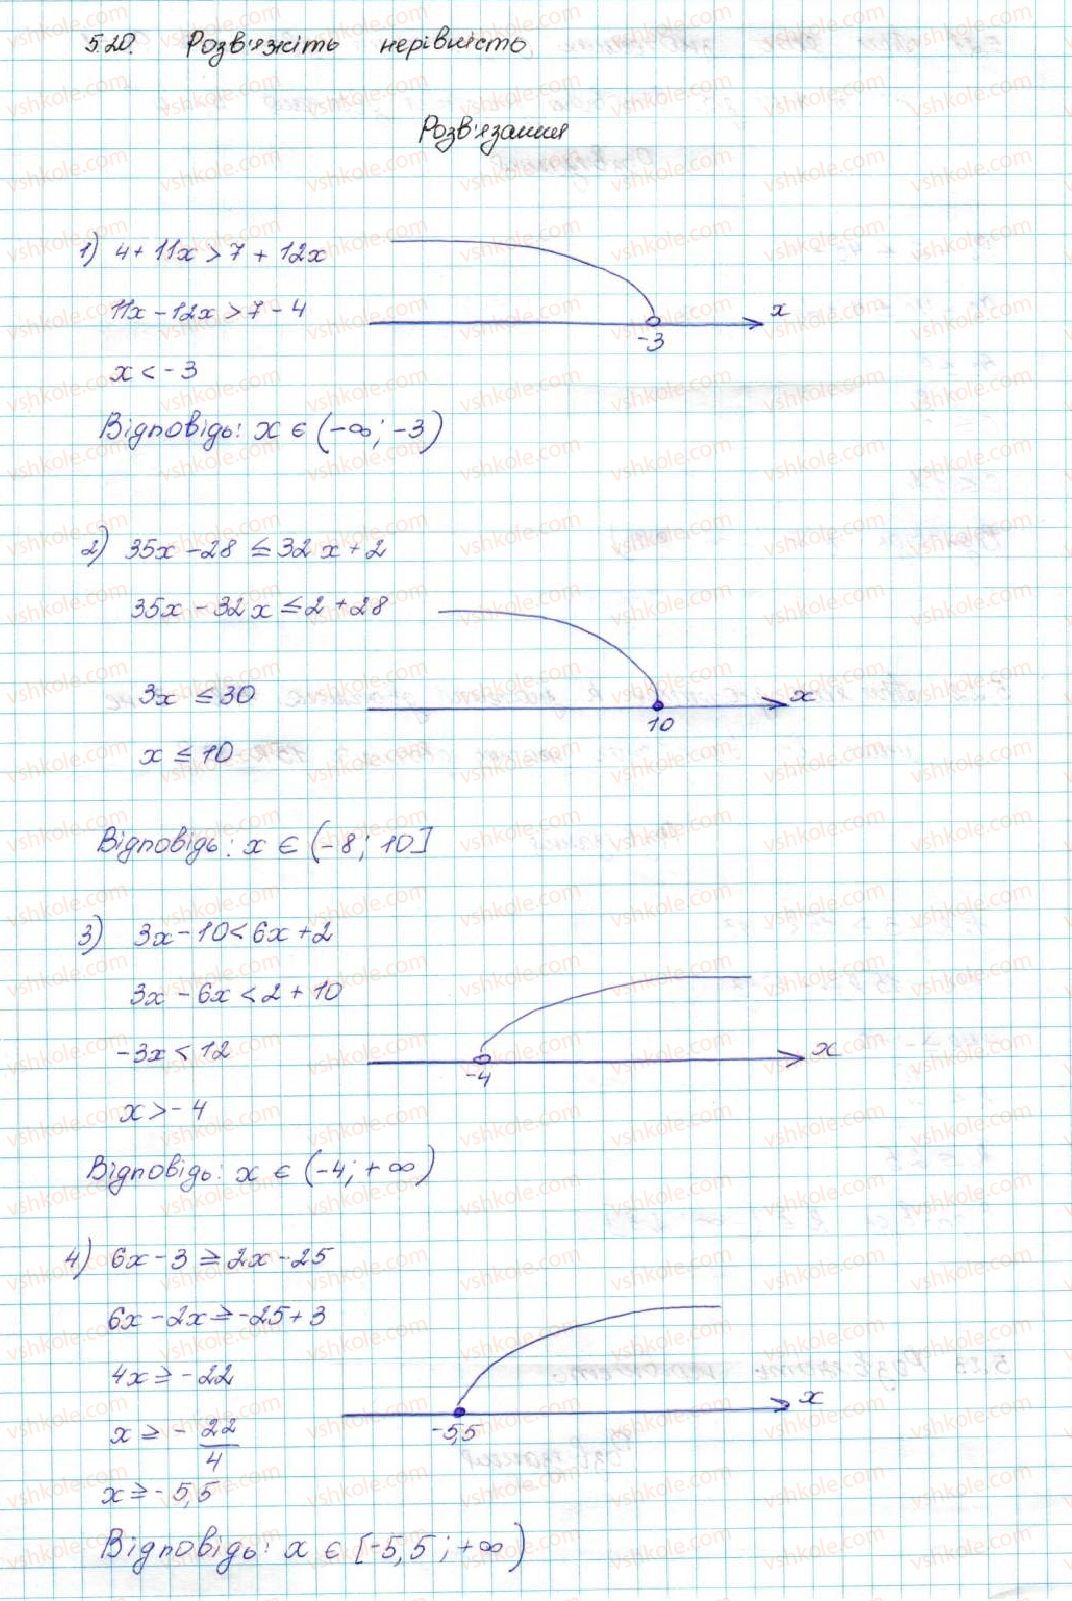 5.20. Розв'яжіть нерівність
Розв'язання
1) 4 + 11x > 7 + 12x
11x - 12x > 7 - 4
x
-3
x < -3
Відповідь: x ∈ (-∞; -3)
2) 35x - 28 ≤ 32x + 2
35x - 32x ≤ 2 + 28
3x ≤ 30
x
10
x ≤ 10
Відповідь: x ∈ (-8; 10]
3) 3x - 10 < 6x + 2
3x - 6x < 2 + 10
-3x < 12
x
-4
x > -4
Відповідь: x ∈ (-4; +∞)
4) 6x - 3 ≥ 2x - 25
6x - 2x ≥ -25 + 3
4x ≥ -22
x
-5,5
x ≥ - 22/4
x ≥ -5,5
Відповідь: x ∈ [-5,5; +∞)
vshkole.com